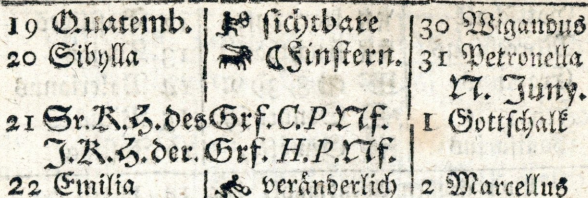 19 Quatemb. sichtbare 30 Wigandus
20 Sibylla ☾Finstern. 31 Petronella
N. Juny.
21 Sr.K.H.des Grf.C.P.Nf. 1 Gottschalk
J.K.H.der.Grf.H.P.Nf.
22 Emilia veränderlich 2 Marcellus